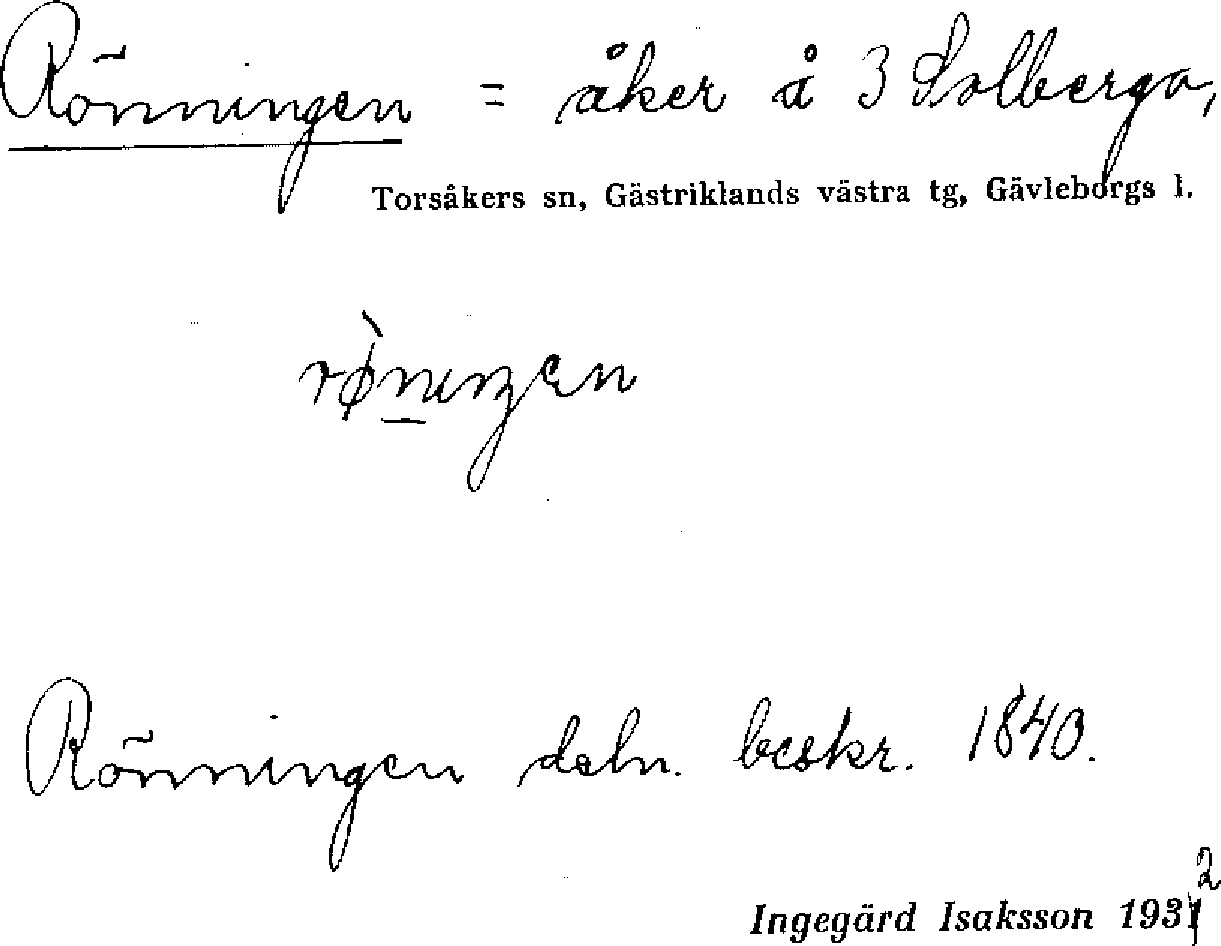 Rönningen = åker å 3 Solberga,
Torsåkers sn, Gästriklands västra tg, Gävleborgs l.
rø̀nıŋen
Rönningen deln. beskr. 1840.
Ingegärd Isaksson 1932